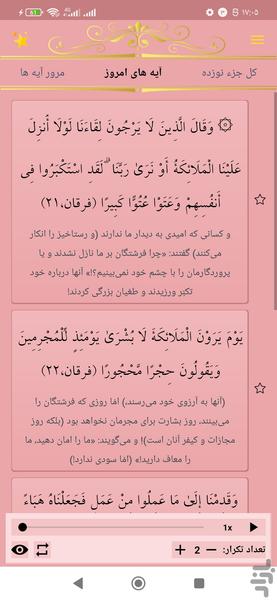 ۱۷:۰۵
کل جزء نوزده
آیه های امروز
مرور آیه ها
۞ وَقَالَ الَّذِينَ لَا يَرْجُونَ لِقَاءَنَا لَوْلَا أُنزِلَ
عَلَيْنَا الْمَلَائِكَةُ أَوْ نَرَىٰ رَبَّنَا ۗ لَقَدِ اسْتَكْبَرُوا فِي
أَنفُسِهِمْ وَعَتَوْا عُتُوًّا كَبِيرًا (فرقان،۲۱)
و کسانی که امیدی به دیدار ما ندارند (و رستاخیز را انکار
می‌کنند) گفتند: «چرا فرشتگان بر ما نازل نشدند و یا
پروردگارمان را با چشم خود نمی‌بینیم؟!» آنها درباره خود
تکبّر ورزیدند و طغیان بزرگی کردند!
يَوْمَ يَرَوْنَ الْمَلَائِكَةَ لَا بُشْرَىٰ يَوْمَئِذٍ لِّلْمُجْرِمِينَ
وَيَقُولُونَ حِجْرًا مَّحْجُورًا (فرقان،۲۲)
(آنها به آرزوی خود می‌رسند،) امّا روزی که فرشتگان را
می‌بینند، روز بشارت برای مجرمان نخواهد بود (بلکه روز
مجازات و کیفر آنان است)! و می‌گویند: «ما را امان دهید، ما
را معاف دارید!» (امّا سودی ندارد!)
وَقَدِمْنَا إِلَىٰ مَا عَمِلُوا مِنْ عَمَلٍ فَجَعَلْنَاهُ هَبَاءً
1x
تعداد تکرار: 2
بازار